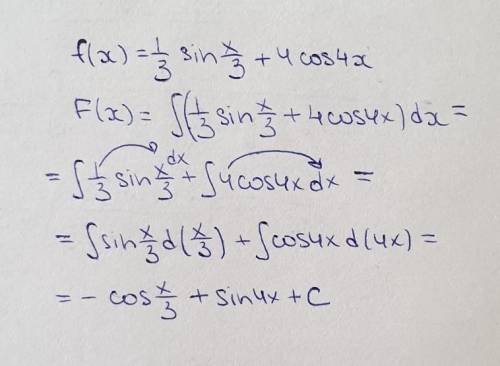 f(x) = 1/3 sin x/3 + 4 cos4x
F(x) = ∫(1/3 sin x/3 + 4cos4x) dx =
= ∫ 1/3 sin x/3 dx + ∫4cos4x dx =
= ∫sin x/3 d(x/3) + ∫cos4x d(4x) =
= - cos x/3 + sin4x + C